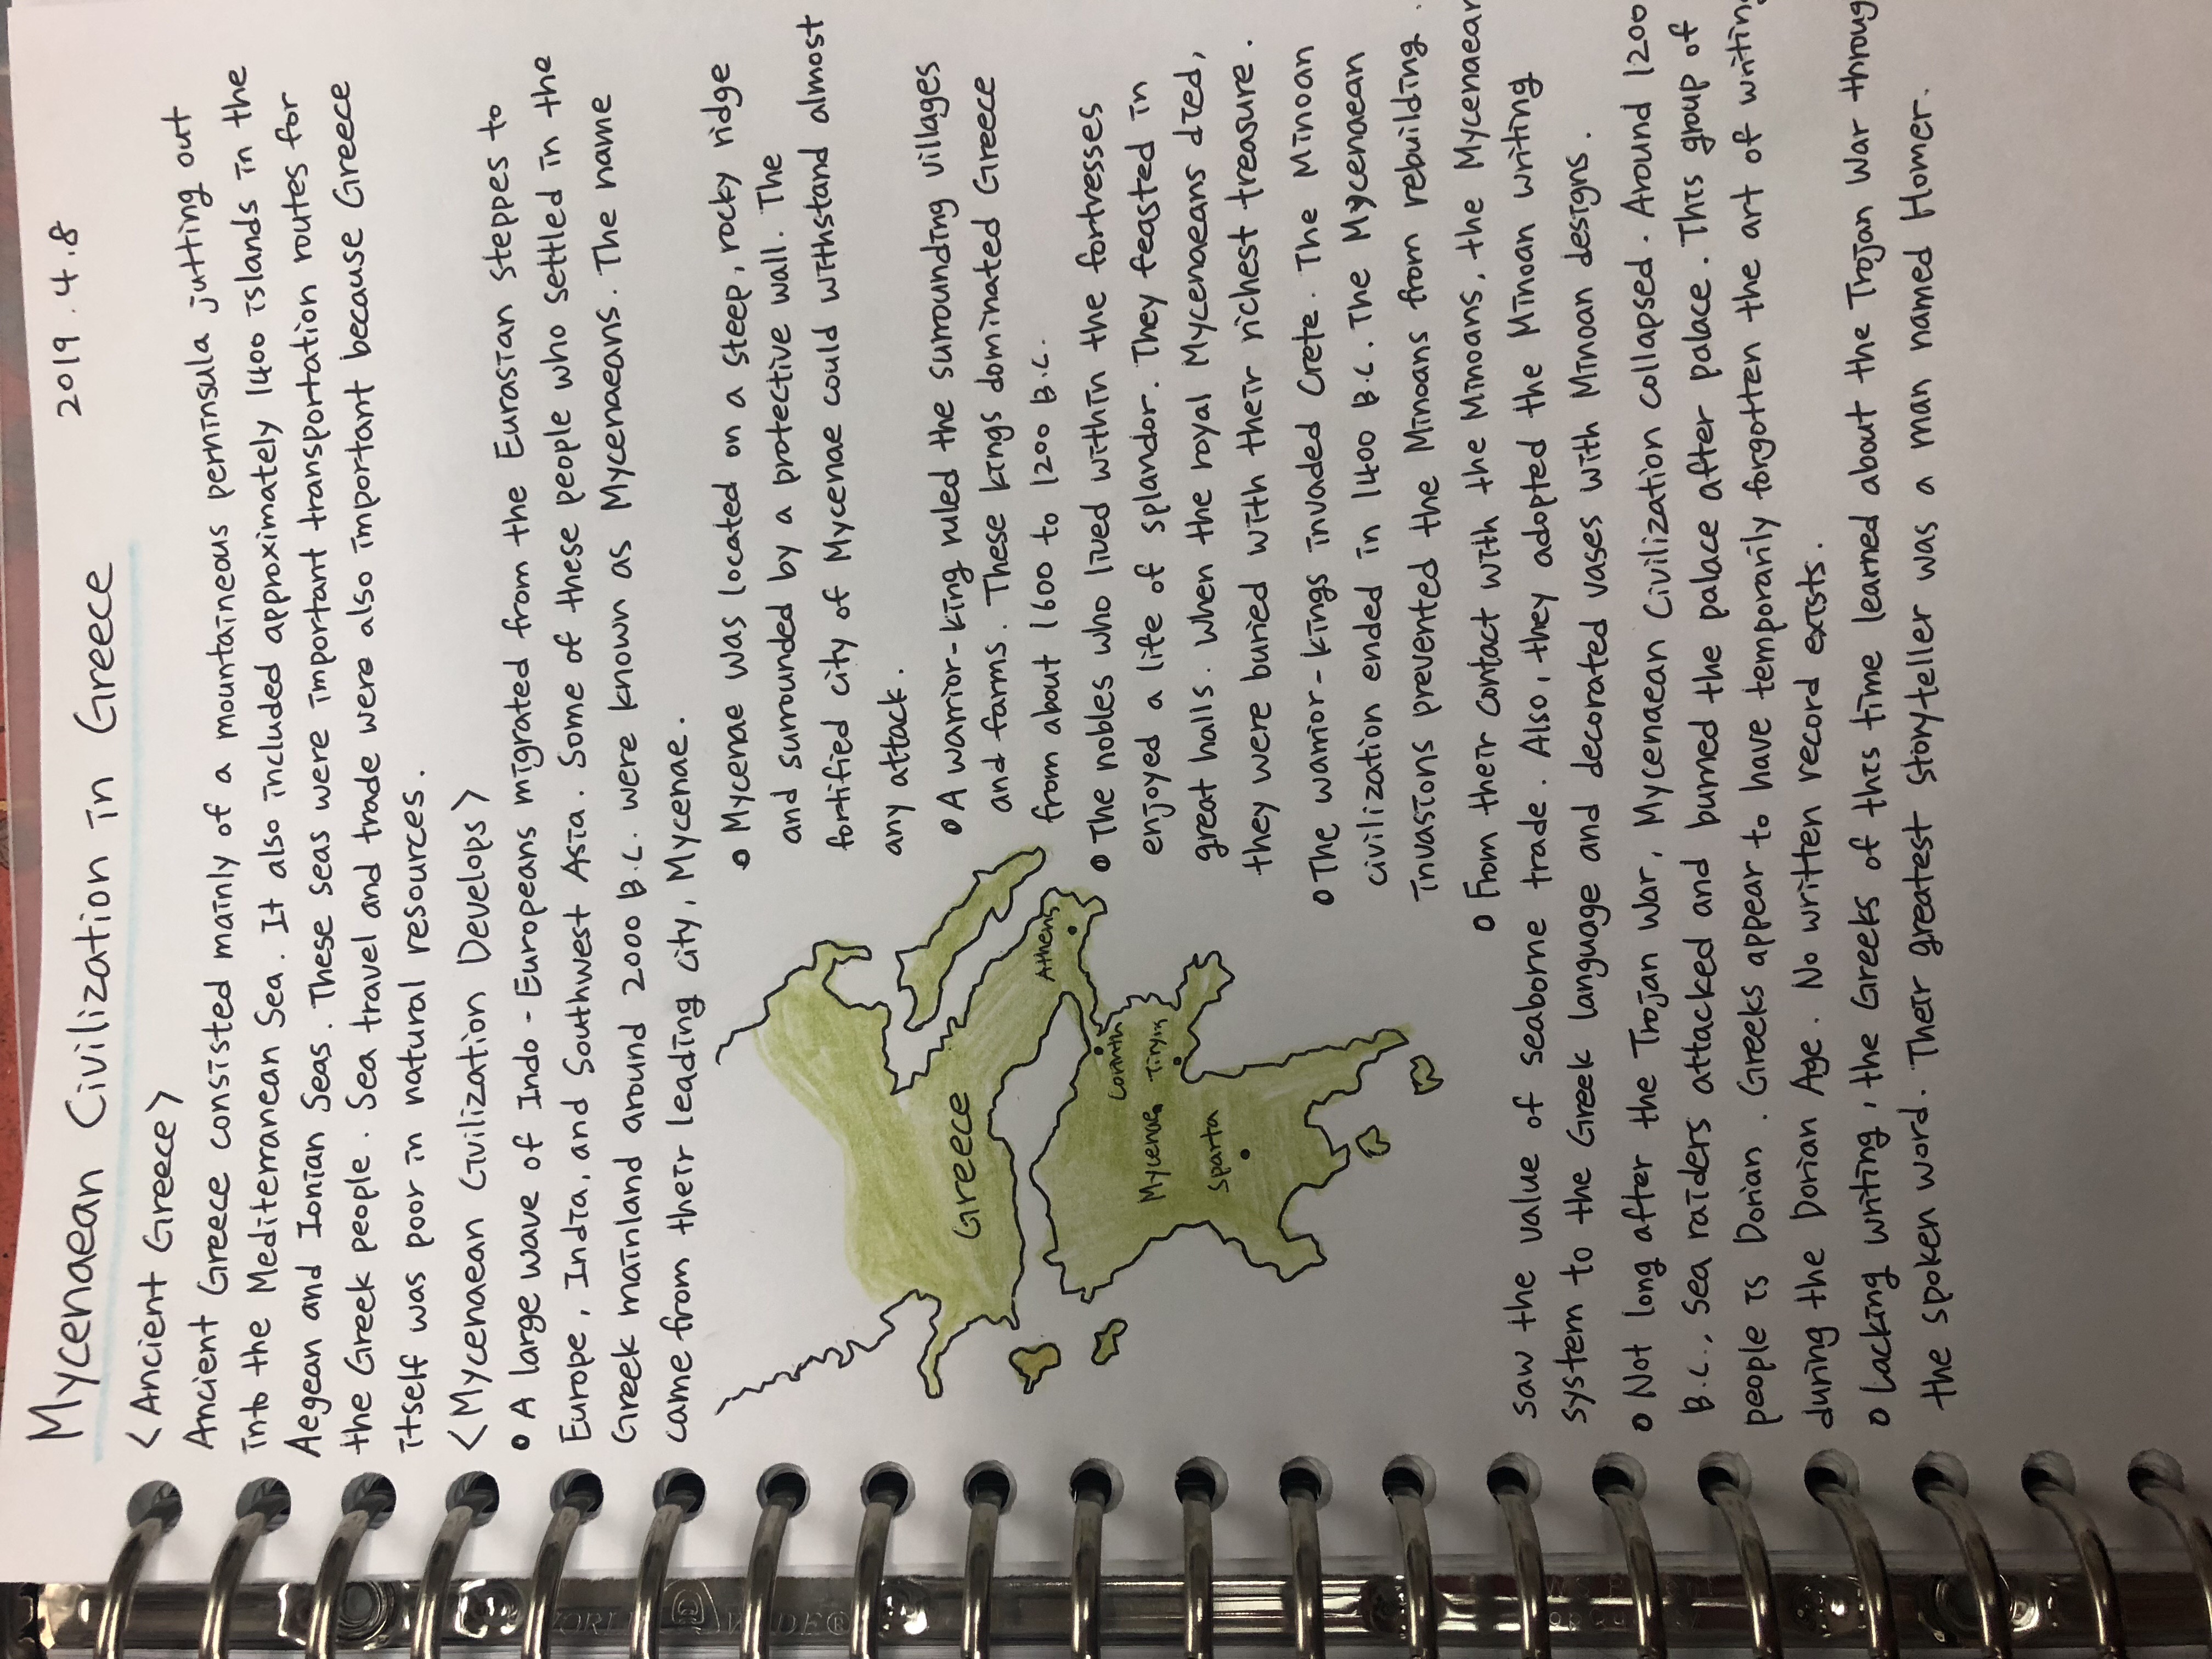 Mycenaean Civilization in Greece 2019.4.8
<Ancient Greece>
Ancient Greece consisted mainly of a mountaineous perninsula jutting out
into the Mediterranean Sea. It also included approximately 1400 islands in the
Aegean and Ionian Seas. These seas were important transportation routes for
the Greek people. Sea travel and trade were also important because Greece
itself was poor in natural resources.
<Mycenaean Civilization Develops>
• A large wave of Indo-Europeans migrated from the Eurasian steppes to
Europe, India, and Southwest Asia. Some of these people who settled in the
Greek mainland around 2000 B.C. were known as Mycenaeans. The name
came from their leading city, Mycenae.
• Mycenae was located on a steep, rocky ridge
and surrounded by a protective wall. The
fortified city of Mycenae could withstand almost
any attack.
• A warrior-king ruled the surrounding villages
and farms. These kings dominated Greece
from about 1600 to 1200 B.C.
• The nobles who lived within the fortresses
enjoyed a life of splandor. They feasted in
great halls. When the royal Mycenaeans died,
they were buried with their richest treasure.
• The warrior-kings invaded Crete. The Minoan
civilization ended in 1400 B.C. The Mycenaean
invasions prevented the Minoans from rebuilding.
• From their contact with the Minoans, the Mycenaean
saw the value of seaborne trade. Also, they adopted the Minoan writing
system to the Greek language and decorated vases with Minoan designs.
• Not long after the Trojan War, Mycenaean Civilization collapsed. Around 1200
B.C., sea raiders attacked and burned the palace after palace. This group of
people is Dorian. Greeks appear to have temporarily forgotten the art of writing
during the Dorian Age. No written record exists.
• Lacking writing, the Greeks of this time learned about the Trojan War throug
the spoken word. Their greatest storyteller was a man named Homer.
Greece
Athens
Corinth
Mycenae
Tiryns
Sparta
WORLD WIDE®